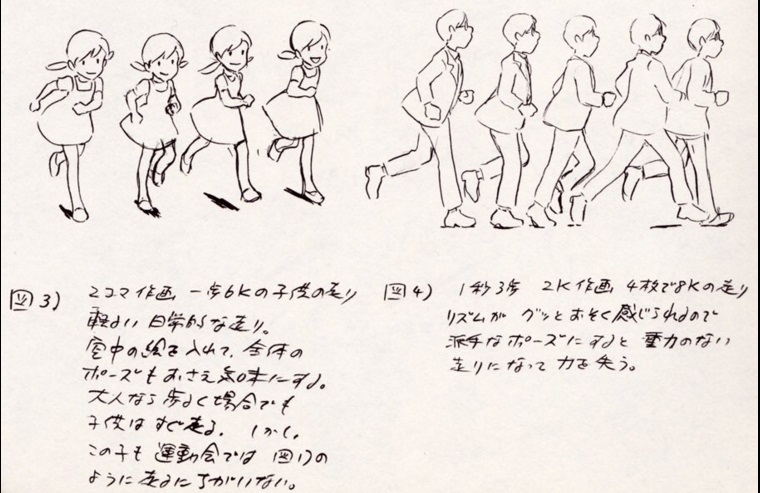 図3) 2コマ作画 一歩6Kの子供の走り
軽い 日常的な走り。
空中の絵を入れて、全体の
ポーズもおさえ気味にする。
大人なら歩く場合でも
子供はすぐ走る。しかし、
この子も運動会では 図1)の
ように走るにちがいない。
図4) 1秒3歩 2K作画 4枚で8Kの走り
リズムが グッとおそく感じられるので
派手なポーズにすると 重力のない
走りになって力を失う。